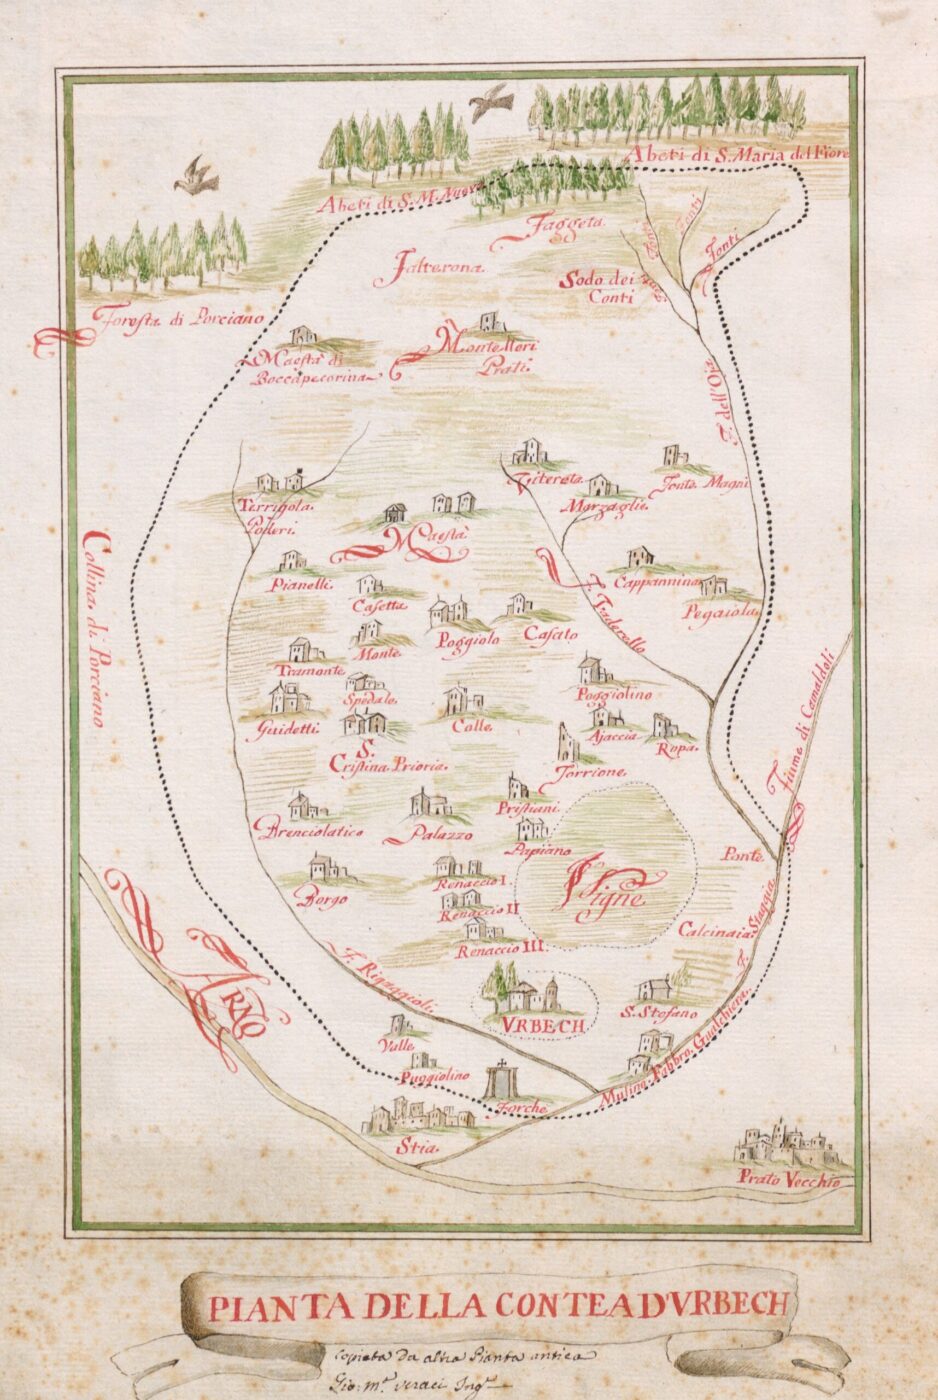 Abeti di S. Maria del Fiore
Abeti di S. M. Nuova
Faggeta
Fonti
Fonti
Fonti
Falterona
Sodo dei
Conti
Foresta di Porciano
Maestà di
Boccapecorina
Montelleri
Prati
F. dell'Oia
Terrigola
Poderi
Vitereta
Marzaglie
Fonte Magni
Maestà
Pianelli
Casetta
Cappannina
Pegaiola
Collina di Porciano
Poggiolo
Casato
Monte
Tramonte
Spedale
Poggiolino
Guidetti
Colle
Ajaccia
Ropa
S.
Cristina Prioria
Torrione
Fiume di Camaldoli
Pristiani
Brenciolatico
Palazzo
Papiano
Ponte
Vigne
Borgo
Renaccio I.
Renaccio II
Renaccio III.
Calcinaia
F. Staggia
F. Rigaggioli
ARNO
VRBECH
S. Stefano
Valle
Puggiolino
Forche
Mulino, Fabbro, Gualchiera
Stia
Prato Vecchio
PIANTA DELLA CONTEA D'VRBECH
Copiata da altra Pianta antica
Gio: Mª. Veraci Ingre